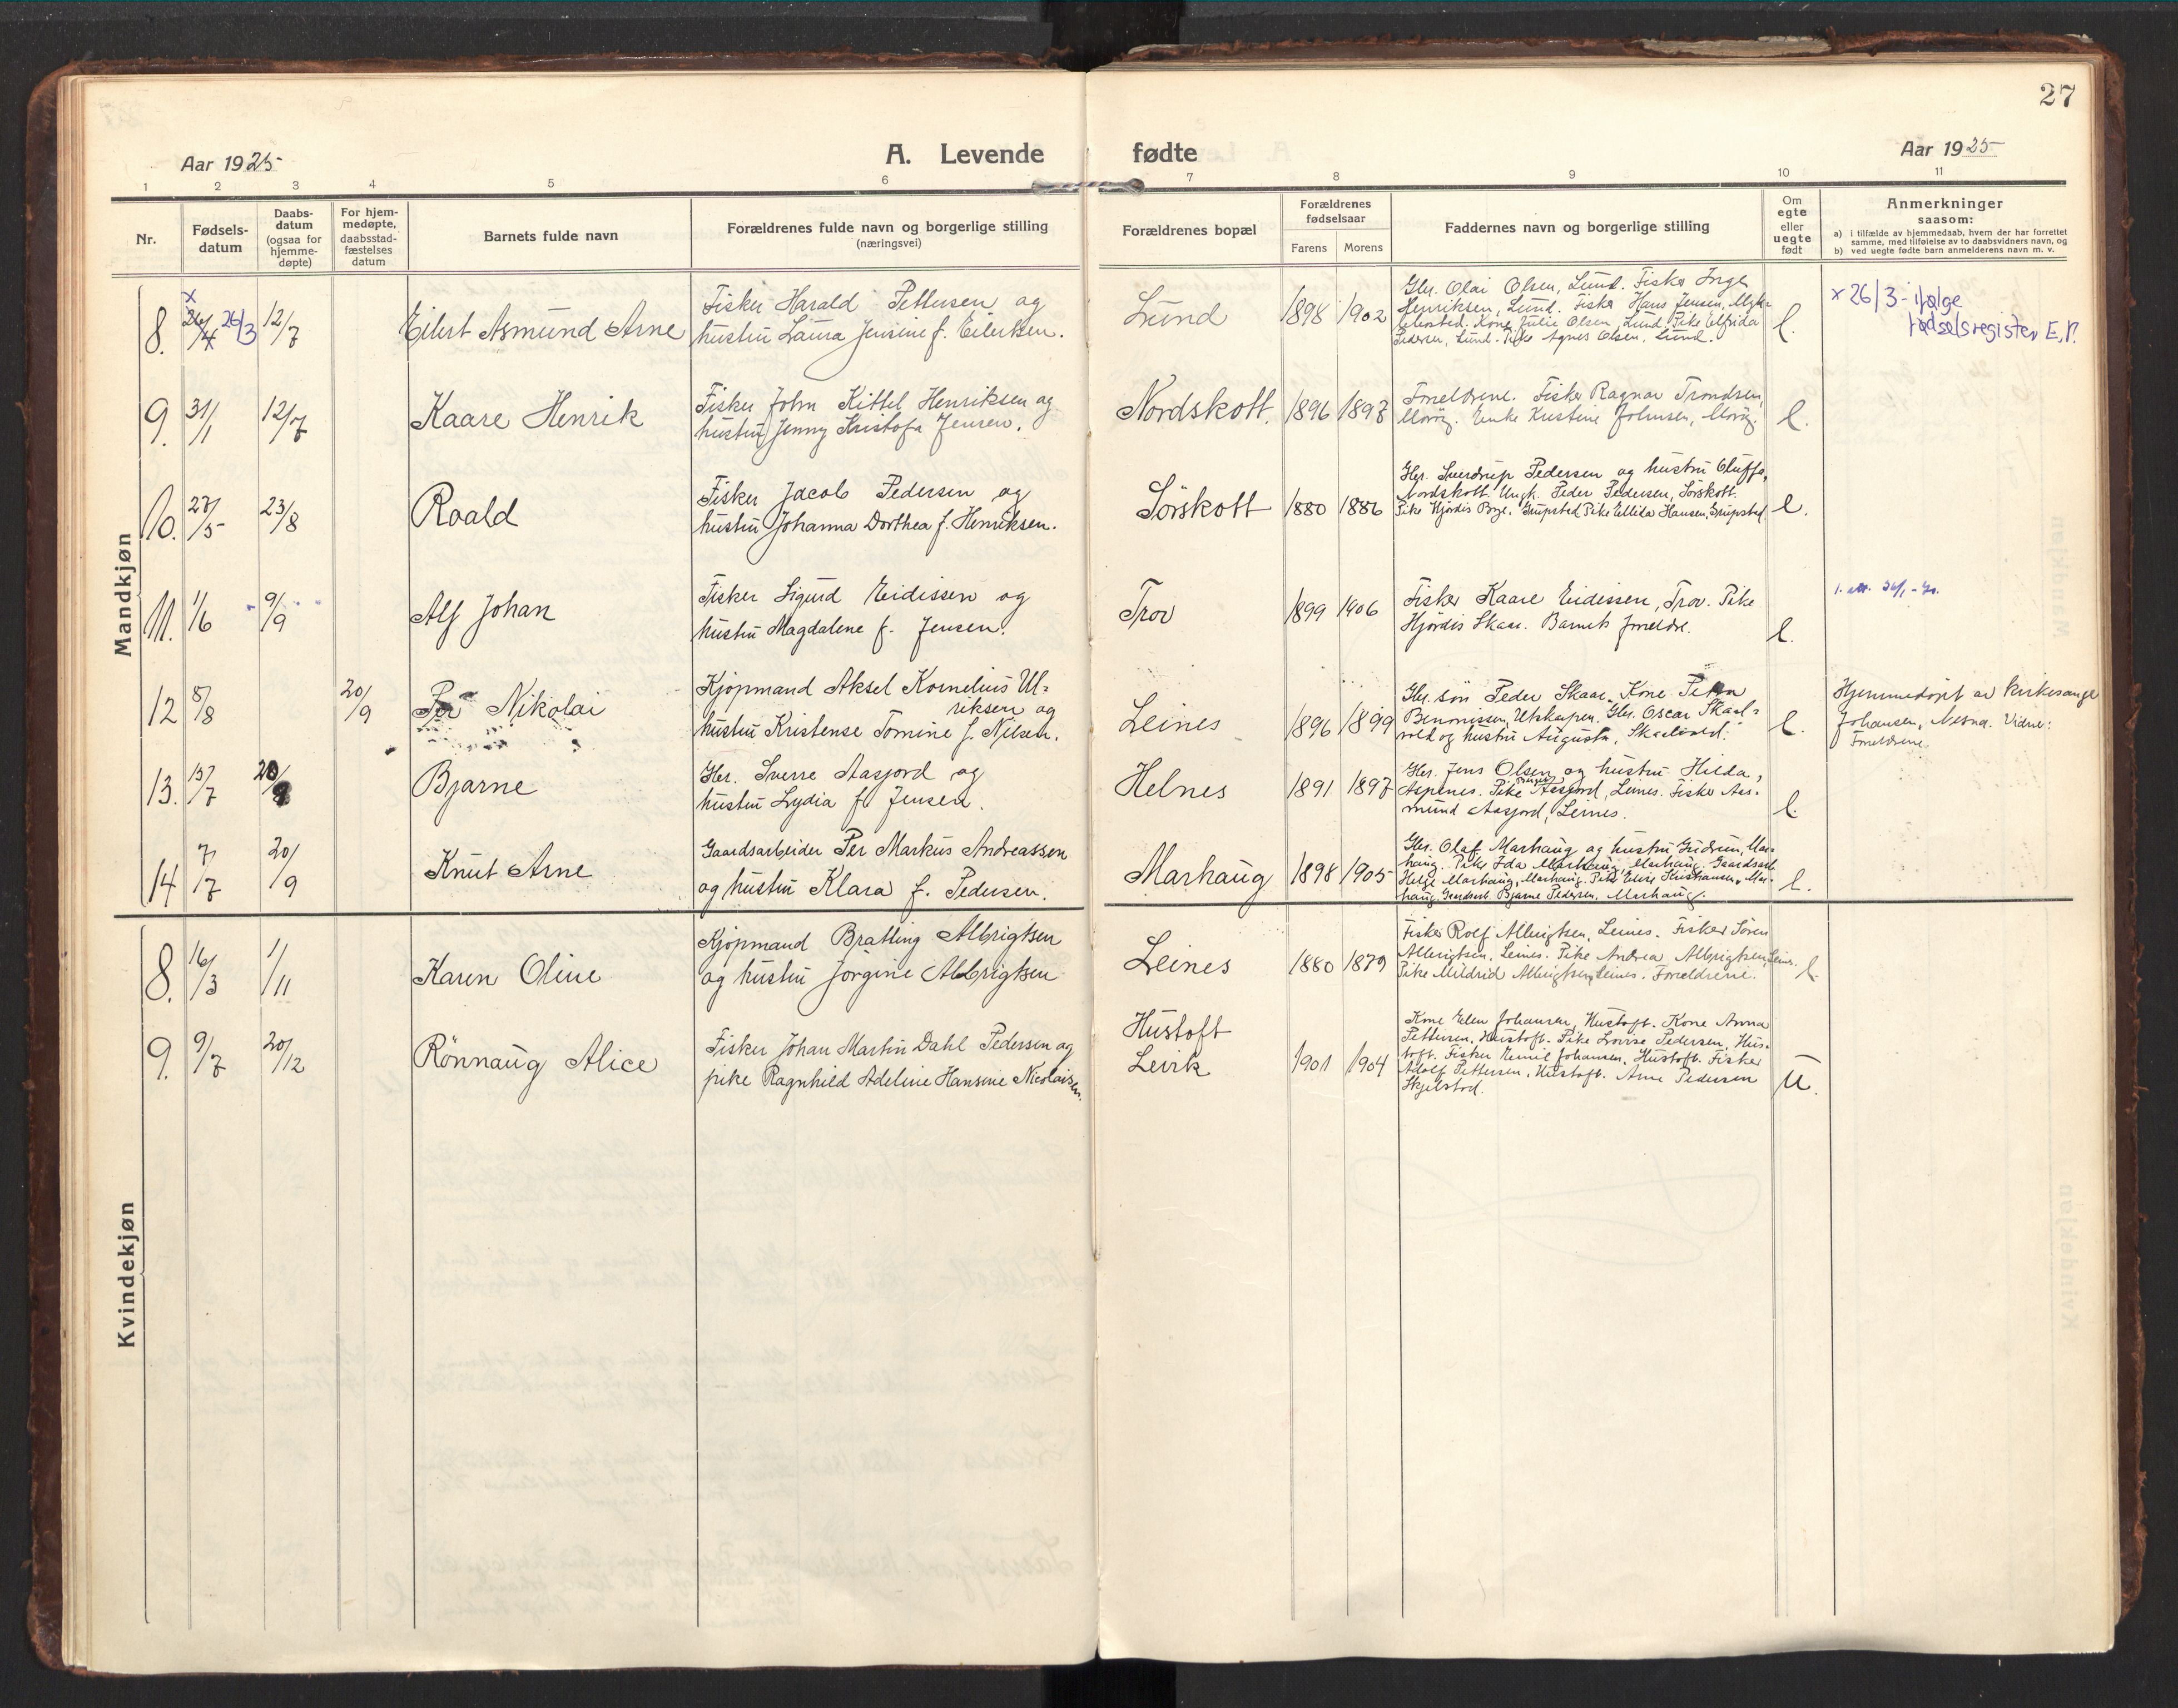 27
Aar 1925
A. Levende
fødte
Aar 1925
1 2 3 4 5 6 7 8 9 10 11
Nr.
Fødsels-
datum
Daabs-
datum
(ogsaa for
hjemme-
døpte)
For hjem-
medøpte,
daabsstad-
fæstelses
datum
Barnets fulde navn
Forældrenes fulde navn og borgerlige stilling
(næringsvei)
Forældrenes bopæl
Forældrenes
fødselsaar
Farens Morens
Faddernes navn og borgerlige stilling
Om
egte
eller
uegte
født
Anmerkninger
saasom:
a) i tilfælde av hjemmedaab, hvem der har forrettet
samme, med tilføielse av to daabsvidners navn, og
b) ved uegte fødte barn anmelderens navn m. v.
Mandkjøn
8. x 26/4 26/3 12/7
Eilert Asmund Arne
Fisker Harald Pettersen og
hustru Laura Jensine f. Eilertsen.
Lund
1898 1902
Gbr. Olai Olsen, Lund. Fisker Inge
Henriksen, Lund. Fisker Hans Jensen,
Kone Julie Olsen, Lund. Pike Elfrida
Pedersen, Lund. Pike Agnes Olsen, Lund.
e.
x 26/3 - ifølge
fødselsregister E.P.
9. 31/1 12/7
Kaare Henrik
Fisker John Kittel Henriksen og
hustru Jenny Kristofa Jensen.
Nordskott.
1896 1893
Foreldrene. Fisker Ragnar Trondsen,
Enke Kristine Johnsen,
e.
10. 27/5 23/8
Roald
Fisker Jacob Pedersen og
hustru Johanna Dorthea f. Henriksen.
Sörskott
1880 1886
Gbr. Sverdrup Pedersen og hustru Oluffa,
Nordskott. Ungk. Peder Pedersen, Sörskott.
Pike Hjördis Brye, Grupstad Pike Ellida Hansen, Grupstad.
e.
11. 1/6 9/9
Alf Johan
Fisker Sigurd Eidissen og
hustru Magdalene f. Jensen.
Trov
1899 1906
Fisker Kaare Eidissen, Trov. Pike
Hjördis Skaar. Barnets foreldre.
e.
12 8/8 20/9
Per Nikolai
Kjöpmand Aksel Kornelius Ul=
riksen og
hustru Kristense Tomine f. Nilsen.
Leines
1896 1899
Gbr. sön Peder Skaar. Kone Petra
Benonissen, Utskarpen. Gbr. Oscar Skaal=
vold og hustru Augusta, Skaalvold.
e.
Hjemmedöpt av kirkesanger
Johansen, Nesna. Vidner:
Foreldrene.
13. 15/7 20/9
Bjarne
Gbr. Sverre Aasjord og
hustru Lydia f. Jensen.
Helnes
1891 1897
Gbr. Jens Olsen og hustru Hilda,
Aspenes. Pike Aasjord, Leines. Fisker Aas-
mund Aasjord, Leines.
e.
14 7/7 20/9
Knut Arne
Gaardsarbeider Per Markus Andreassen
og hustru Klara f. Pedersen.
Marhaug
1898 1905
Gbr. Olaf Marhaug og hustru Gudrun, Mar=
haug. Pike Ida Marhaug, Marhaug. Gaardsarb.
Helge Marhaug, Marhaug. Pike Elise Kristiansen, Mar-
haug. Gaardsarb. Bjarne Pedersen, Marhaug.
e.
Kvindekjøn
8. 16/3 1/11
Karen Oline
Kjöpmand Bratling Albrigtsen
og hustru Jörgine Albrigtsen
Leines
1880 1879
Fisker Rolf Albrigtsen, Leines. Fisker Sören
Albrigtsen, Leines. Pike Andrea Albrigtsen, Leines.
Pike Mildrid Albrigtsen, Leines. Foreldrene.
e.
9. 9/7 20/12
Rönnaug Alice
Fisker Johan Martin Dahl Pedersen og
pike Ragnhild Adeline Hansine Nicolaisen.
Hustoft
Leirk
1901 1904
Kone Elen Johansen, Hustoft. Kone Anna
Pettersen, Hustoft. Pike Lovise Pedersen, Hus-
toft. Fisker Emil Johansen, Hustoft. Fisker
Adolf Pettersen, Hustoft. Arne Pedersen
Skjelstad.
U.